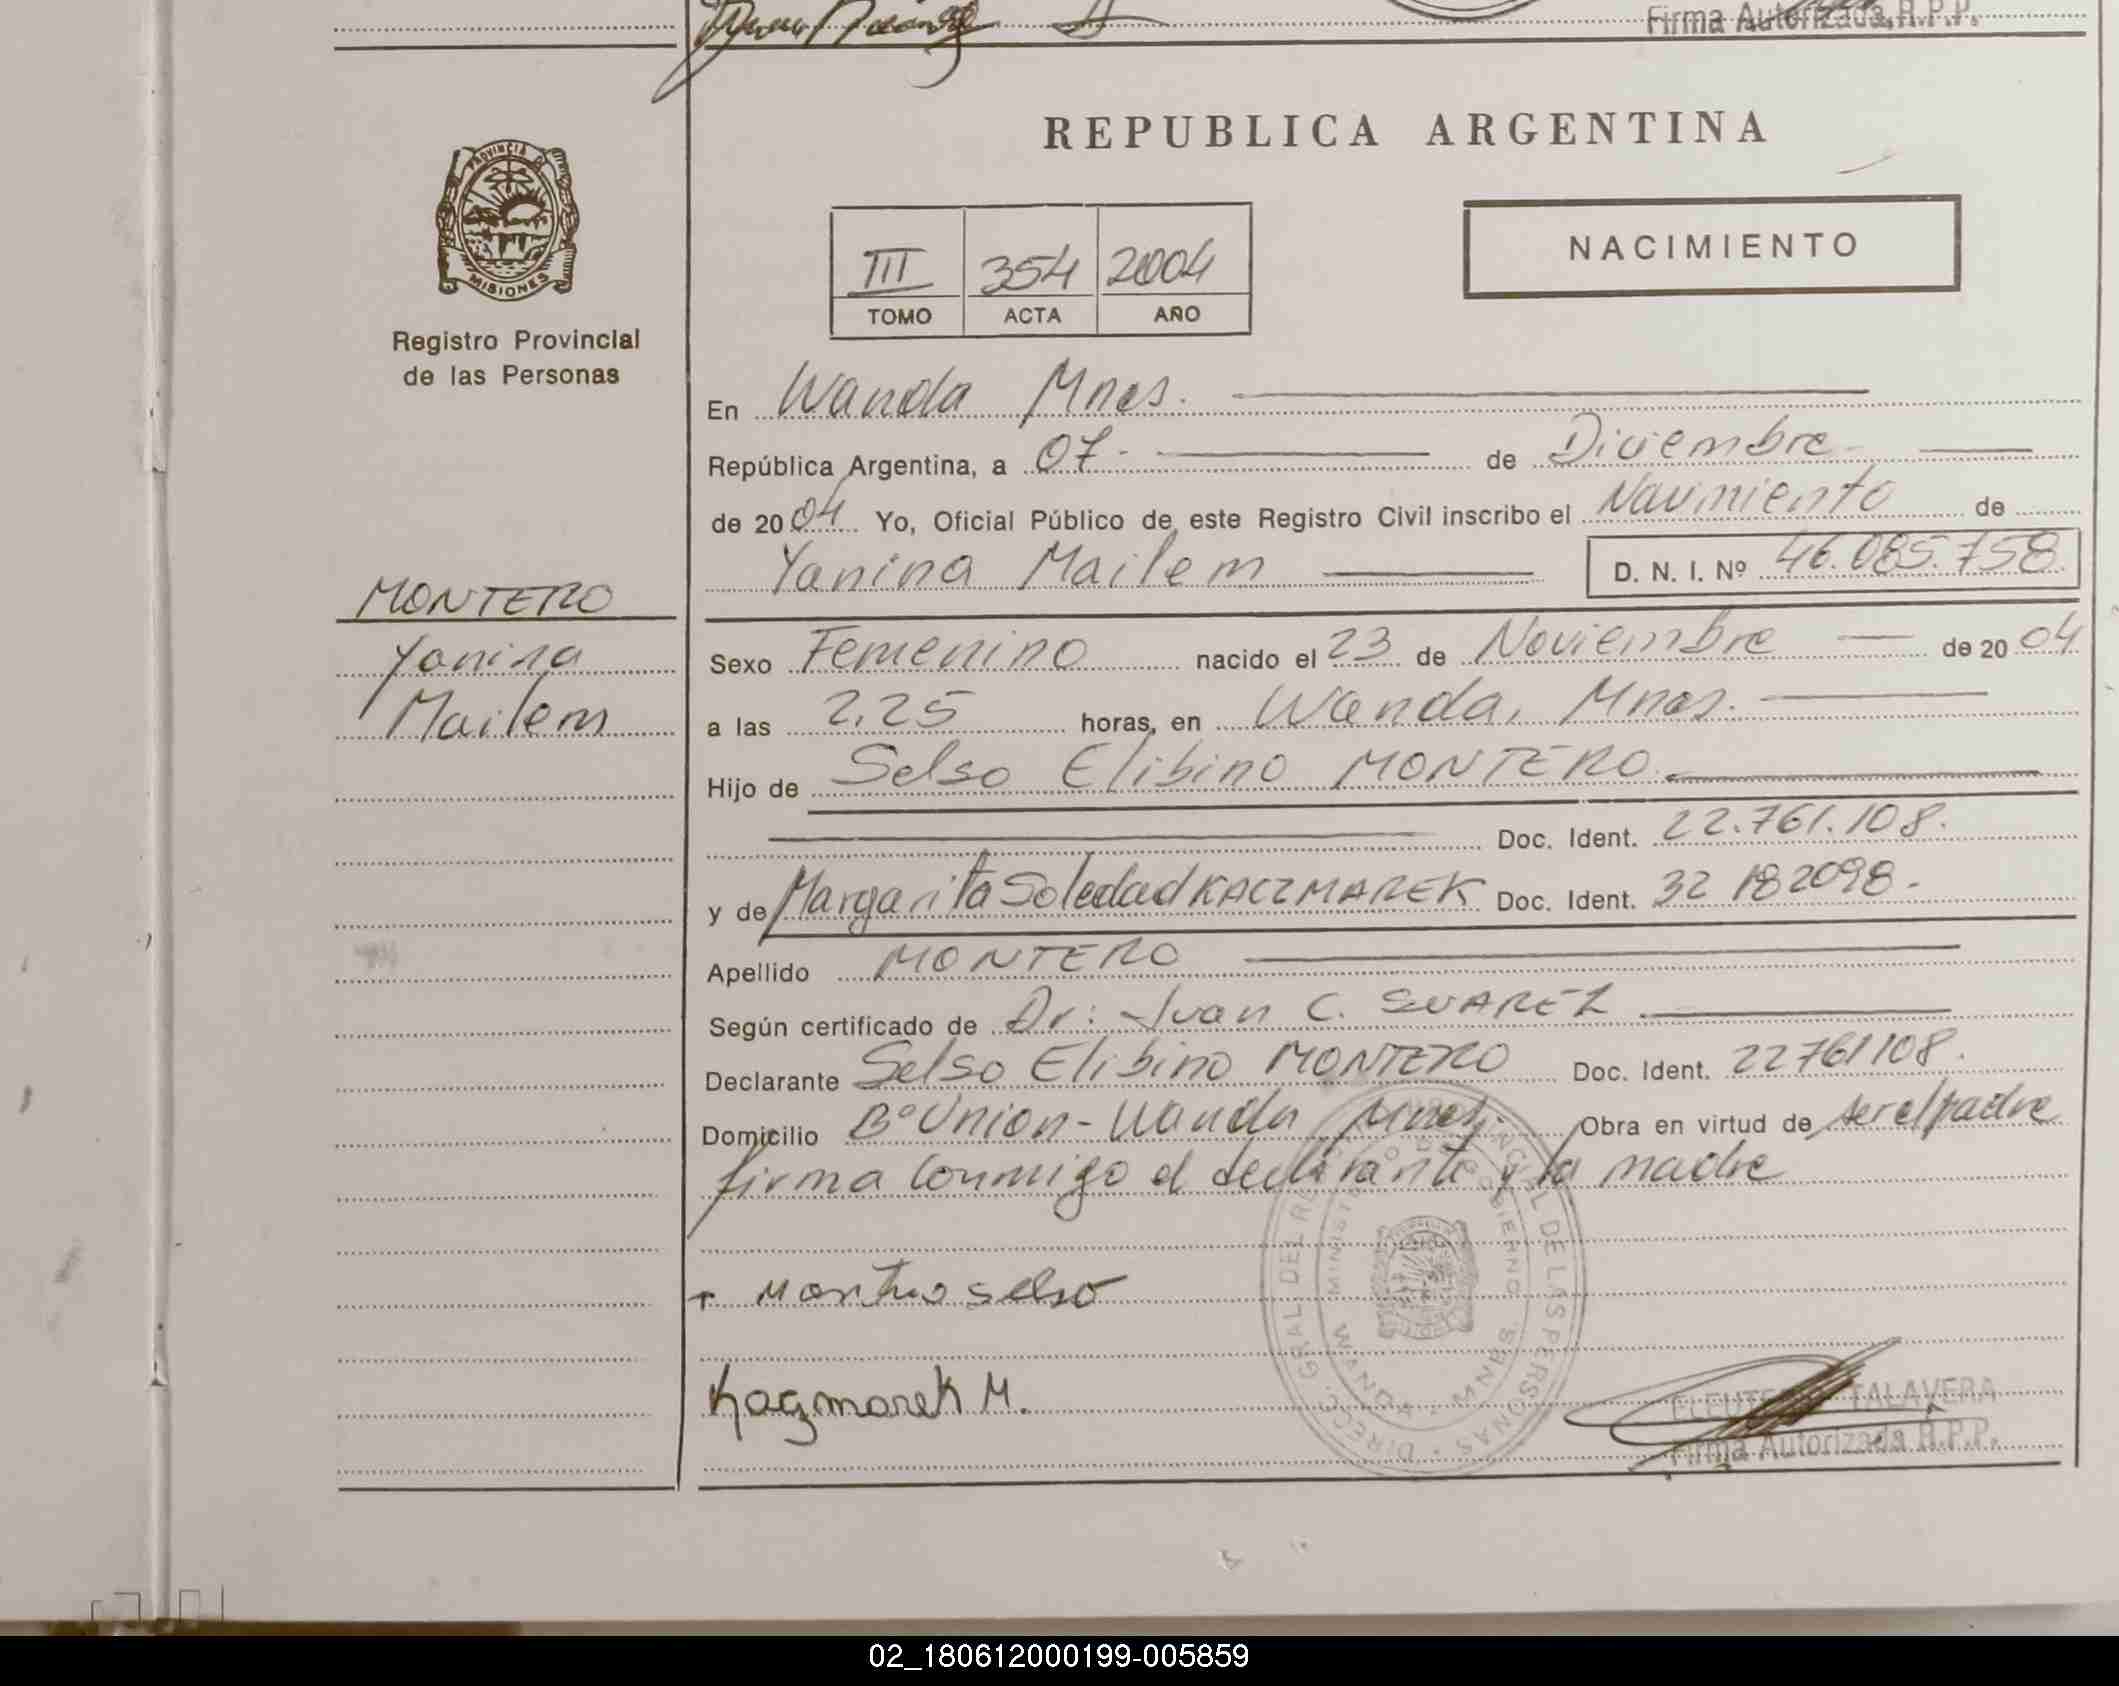 Firma Autorizada R.P.P.
PROVINCIA DE
MISIONES
Registro Provincial
de las Personas
REPUBLICA ARGENTINA
NACIMIENTO
III 354 2004
TOMO ACTA AÑO
En Wanda Mnes.
República Argentina, a 07 de Diciembre
de 2004 Yo, Oficial Público de este Registro Civil inscribo el Nacimiento de
Yanina Mailem D. N. I. Nº 46.085.758
MONTERO
Yanina
Mailem
Sexo Femenino nacido el 23 de Noviembre de 2004
a las 2.25 horas, en Wanda, Mnes.
Hijo de Selso Elibino MONTERO
Doc. Ident. 22.761.108.
y de Margarita Soledad KACZMAREK Doc. Ident. 32 182098.
Apellido MONTERO
Según certificado de Dr: Juan C. SUAREZ
Declarante Selso Elibino MONTERO Doc. Ident. 22761108.
Domicilio Bº Union - Wanda Mnes. Obra en virtud de ser el padre
firma conmigo el declarante y la madre
Montero Selso
Kaczmarek M.
DIRECC. GRAL. DEL REGISTRO PROVINCIAL DE LAS PERSONAS
MINISTERIO DE GOBIERNO
WANDA - MNES.
ELEUTERIO TALAVERA
Firma Autorizada R.P.P.
02_180612000199-005859